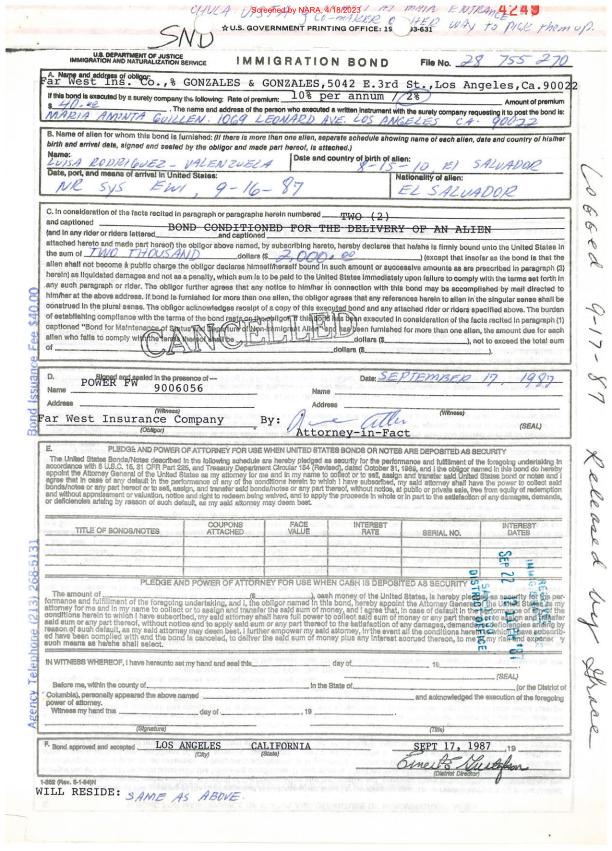 CHULA VISTA AT MAIN ENTRANCE
Screened by NARA, 4/18/2023
4249
co-maker HER WAY to PICK them up.
SND
☆U.S. GOVERNMENT PRINTING OFFICE: 19 83-631
U.S. DEPARTMENT OF JUSTICE
IMMIGRATION AND NATURALIZATION SERVICE
IMMIGRATION BOND
File No. 28 755 270
A. Name and address of obligor
Far West Ins. Co.,% GONZALES & GONZALES,5042 E.3rd St.,Los Angeles,Ca.90022
If this bond is executed by a surety company the following: Rate of premium: 10% per annum (2%) Amount of premium
$ 40.00 . The name and address of the person who executed a written instrument with the surety company requesting it to post the bond is:
MARIA AMINTA GUILLEN. 1069 LEONARD AVE. LOS ANGELES CA. 90022
B. Name of alien for whom this bond is furnished: (If there is more than one alien, separate schedule showing name of each alien, date and country of his/her
birth and arrival date, signed and sealed by the obligor and made part hereof, is attached.)
Name: LUISA RODRIGUEZ-VALENZUELA
Date and country of birth of alien: 8-15-10 EL SALVADOR
Date, port, and means of arrival in United States: NR SYS EWI, 9-16-87
Nationality of alien: EL SALVADOR
C. In consideration of the facts recited in paragraph or paragraphs herein numbered TWO (2)
and captioned BOND CONDITIONED FOR THE DELIVERY OF AN ALIEN
(and in any rider or riders lettered and captioned
attached hereto and made part hereof) the obligor above named, by subscribing hereto, hereby declares that he/she is firmly bound unto the United States in
the sum of TWO THOUSAND dollars ($ 2,000.00 ) (except that insofar as the bond is that the
alien shall not become a public charge the obligor declares himself/herself bound in such amount or successive amounts as are prescribed in paragraph (3)
herein) as liquidated damages and not as a penalty, which sum is to be paid to the United States immediately upon failure to comply with the terms set forth in
any such paragraph or rider. The obligor further agrees that any notice to him/her in connection with this bond may be accomplished by mail directed to
him/her at the above address. If bond is furnished for more than one alien, the obligor agrees that any references herein to alien in the singular sense shall be
construed in the plural sense. The obligor acknowledges receipt of a copy of this executed bond and any attached rider or riders specified above. The burden
of establishing compliance with the terms of the bond rests on the obligor. If this bond has been executed in consideration of the facts recited in paragraph (1)
captioned "Bond for Maintenance of Status and Departure of Non-Immigrant Alien" and has been furnished for more than one alien, the amount due for each
alien who fails to comply with the terms thereof shall be dollars ($ ), not to exceed the total sum
of dollars ($ ).
CANCELLED
D. Signed and sealed in the presence of—
Date: SEPTEMBER 17, 1987
Name POWER FW 9006056
Name
Address
Address
(Witness)
(Witness)
Far West Insurance Company By:
(SEAL)
(Obligor)
Attorney-in-Fact
E. PLEDGE AND POWER OF ATTORNEY FOR USE WHEN UNITED STATES BONDS OR NOTES ARE DEPOSITED AS SECURITY
The United States Bonds/Notes described in the following schedule are hereby pledged as security for the performance and fulfillment of the foregoing undertaking in
accordance with 6 U.S.C. 15, 31 CFR Part 225, and Treasury Department Circular 154 (Revised), dated October 31, 1969, and I the obligor named in this bond do hereby
appoint the Attorney General of the United States as my attorney for me and in my name to collect or to sell, assign and transfer said United States bond or notes and I
agree that in case of any default in the performance of any of the conditions herein to which I have subscribed, my said attorney shall have the power to collect said
bonds/notes or any part thereof or to sell, assign, and transfer said bonds/notes or any part thereof, without notice, at public or private sale, free from equity of redemption
and without appraisement or valuation, notice and right to redeem being waived, and to apply the proceeds in whole or in part to the satisfaction of any damages, demands,
or deficiencies arising by reason of such default, as my said attorney may deem best.
TITLE OF BONDS/NOTES
COUPONS ATTACHED
FACE VALUE
INTEREST RATE
SERIAL NO.
INTEREST DATES
PLEDGE AND POWER OF ATTORNEY FOR USE WHEN CASH IS DEPOSITED AS SECURITY
The amount of ($ ), cash money of the United States, is hereby pledged as security for the per-
formance and fulfillment of the foregoing undertaking, and I, the obligor named in this bond, hereby appoint the Attorney General of the United States as my
attorney for me and in my name to collect or to assign and transfer the said sum of money, and I agree that, in case of default in the performance of any of the
conditions herein to which I have subscribed, my said attorney shall have full power to collect said sum of money or any part thereof or to assign and transfer
said sum or any part thereof, without notice and to apply said sum or any part thereof to the satisfaction of any damages, demands, or deficiencies arising by
reason of such default, as my said attorney may deem best. I further empower my said attorney, in the event all the conditions herein to which I have subscrib-
ed have been complied with and the bond is canceled, to deliver the said sum of money plus any interest accrued thereon, to me at my risk and expense by
such means as he/she shall select.
IN WITNESS WHEREOF, I have hereunto set my hand and seal this day of , 19 .
(SEAL)
Before me, within the county of , in the State of (or the District of
Columbia), personally appeared the above named and acknowledged the execution of the foregoing
power of attorney.
Witness my hand this day of , 19 .
(Signature)
(Title)
F. Bond approved and accepted LOS ANGELES CALIFORNIA SEPT 17, 1987 , 19
(City)
(State)
(District Director)
I-352 (Rev. 5-1-84)N
WILL RESIDE: SAME AS ABOVE.
Bond Issuance Fee $40.00
Agency Telephone (213) 268-5131
SEP 22
DISTRICT OFFICE
Logged 9-17-87 Released